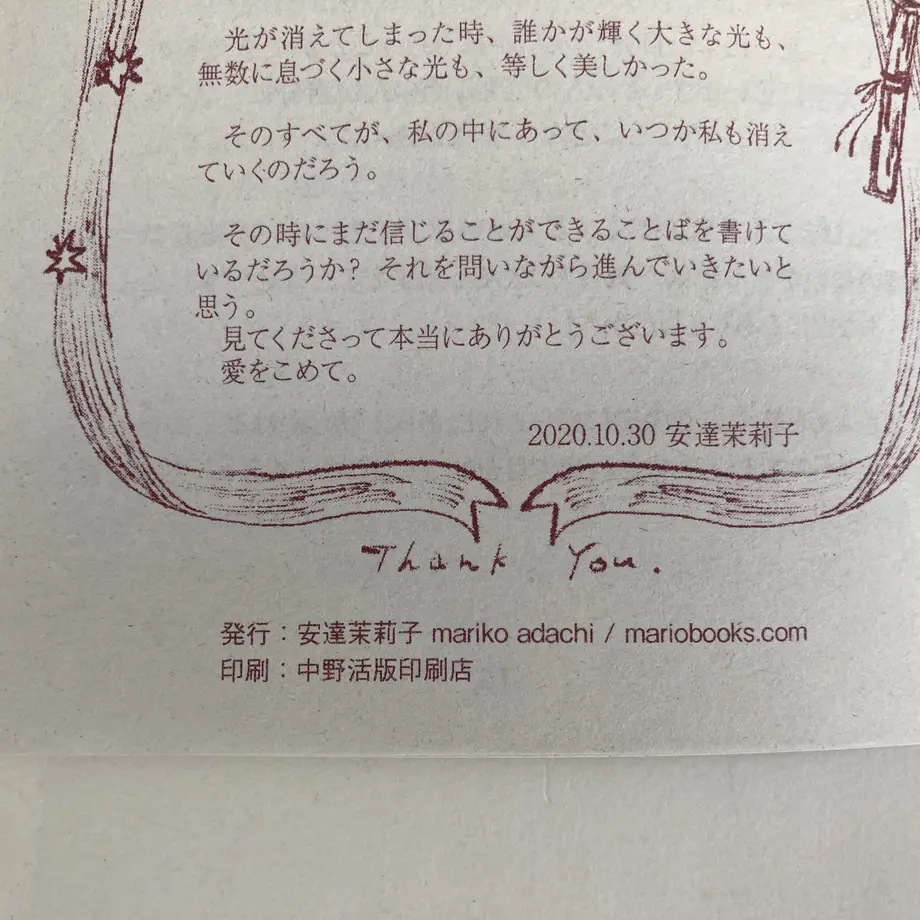 光が消えてしまった時、誰かが輝く大きな光も、
無数に息づく小さな光も、等しく美しかった。
そのすべてが、私の中にあって、いつか私も消え
ていくのだろう。
その時にまだ信じることができることばを書けて
いるだろうか? それを問いながら進んでいきたいと
思う。
見てくださって本当にありがとうございます。
愛をこめて。
2020.10.30 安達茉莉子
Thank You.
発行：安達茉莉子 mariko adachi / mariobooks.com
印刷：中野活版印刷店